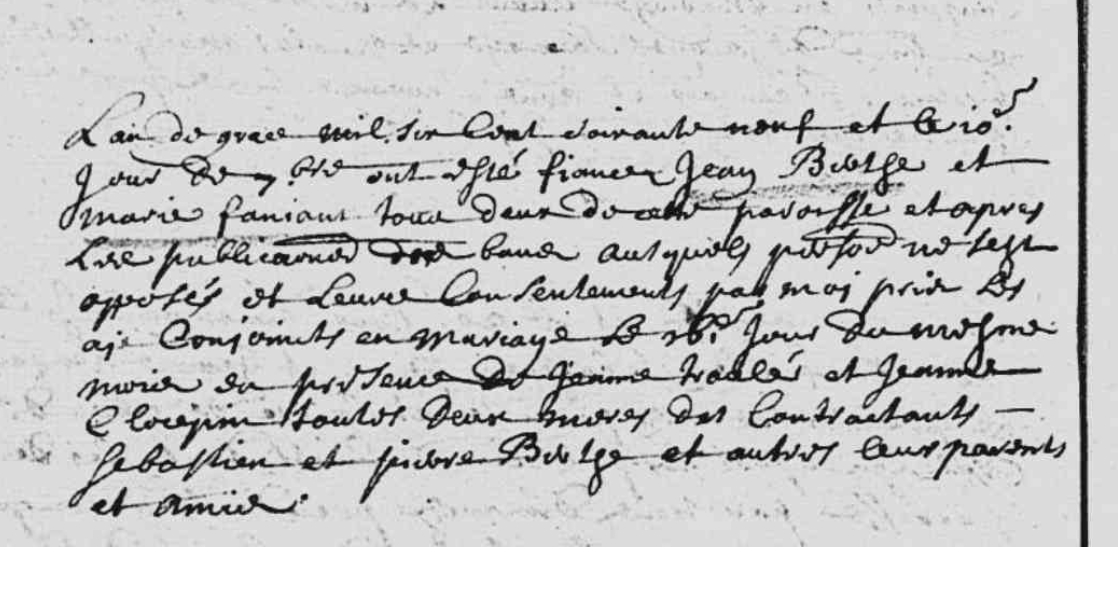 Lan de grace mil six Cent soixante neuf et le 10e.
Jour de 7.bre ont esté fiancez Jean Birthe et
marie faniant tous deux de cette paroisse et apres
Les publications des bans ausquels persoe ne sest
opposés et Leurs Consentements par moi pris Les
aj Conjoincts en Mariage le 16e. Jour du mesme
mois en presence de Jeanne traulés et Jeanne
toutes deux meres des Contractants —
sebastien et pierre Birthe et autres leurs parents
et amis.